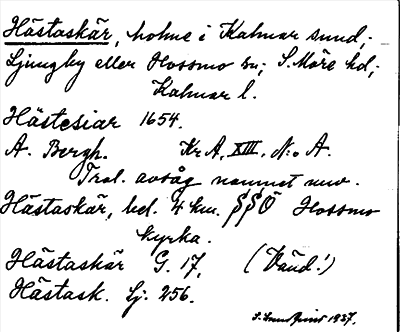 Hästaskär, holme i Kalmar sund,
Ljungby eller Hossmo sn; S. Möre hd;
Kalmar l.
Hästesiar 1654.
A. Bergh. Kr.A, XIII, N:o A.
Trol. avsåg namnet nuv.
Hästaskär, bel. 4 km. SSÖ Hossmo
kyrka.
Hästaskär G. 17, (Vänd!)
Hästask. Lj. 256.
1937.